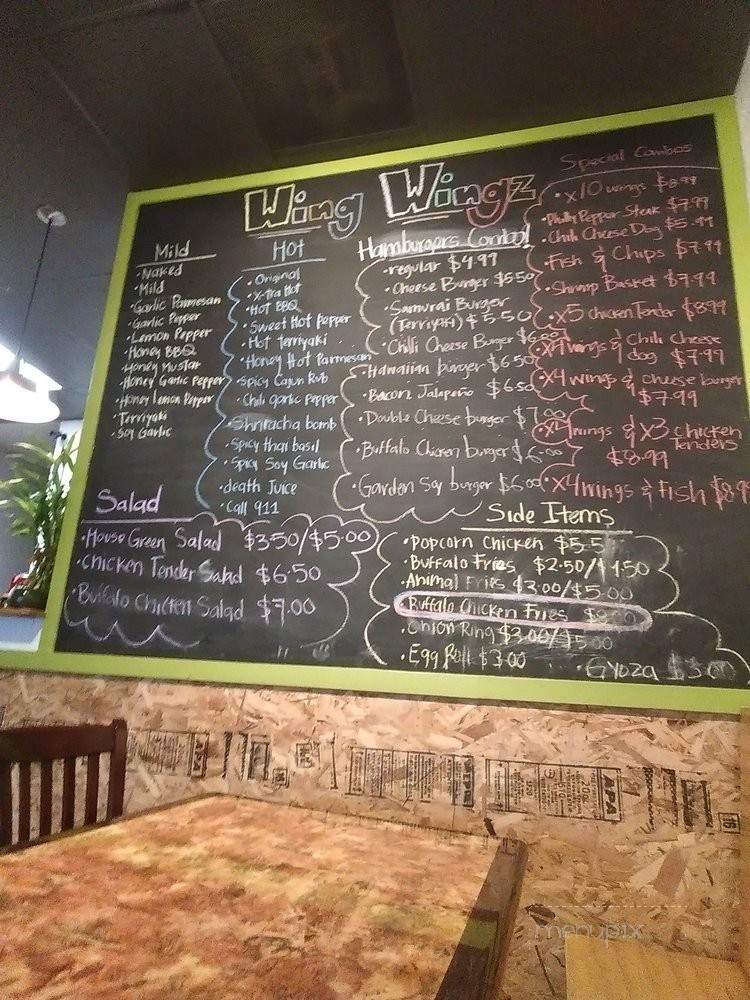 Wing Wingz
Mild
• Naked
• Mild
• Garlic Parmesan
• Garlic Pepper
• Lemon Pepper
• Honey BBQ
• Honey Mustar
• Honey Garlic Pepper
• Honey lemon Pepper
• Terriyaki
• Soy Garlic
Hot
• Original
• X-tra Hot
• Hot BBQ
• Sweet Hot Pepper
• Hot Terriyaki
• Honey Hot Parmesan
• Spicy Cajun Rub
• Chili garlic Pepper
• Shriracha bomb
• Spicy thai basil
• Spicy Soy Garlic
• death Juice
• Call 911
Hamburgers Combo!
• regular $4.99
• Cheese Burger $5.50
• Samurai Burger
(Terriyaki) $5.50
• Chilli Cheese Burger $6.00
• Hawaiian burger $6.50
• Bacon Jalapeño $6.50
• Double Cheese burger $7.00
• Buffalo Chicken burger $6.00
• Garden Soy burger $6.00
Special Combos
• x10 wings $8.99
• Philly Pepper Steak $7.99
• Chili Cheese Dog $5.99
• Fish & Chips $7.99
• Shrimp Basket $7.99
• x5 chicken Tender $8.99
• x4 wings & Chili cheese
dog $7.99
• x4 wings & cheese burger
$7.99
• x4 wings & x3 chicken
tenders
$8.99
• x4 wings & Fish
Salad
• House Green Salad $3.50/$5.00
• Chicken Tender Salad $6.50
• Buffalo Chicken Salad $7.00
Side Items
• Popcorn Chicken
• Buffalo Fries $2.50/4.50
• Animal Fries $3.00/$5.00
• Buffalo Chicken Fries
• Onion Ring $3.00/$5.00
• Egg Roll $3.00
• Gyoza $5.00
APA
APA
menupix